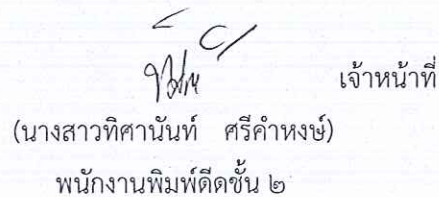 เจ้าหน้าที่
(นางสาวทิศานันท์ ศรีคำหงษ์)
พนักงานพิมพ์ดีดชั้น ๒